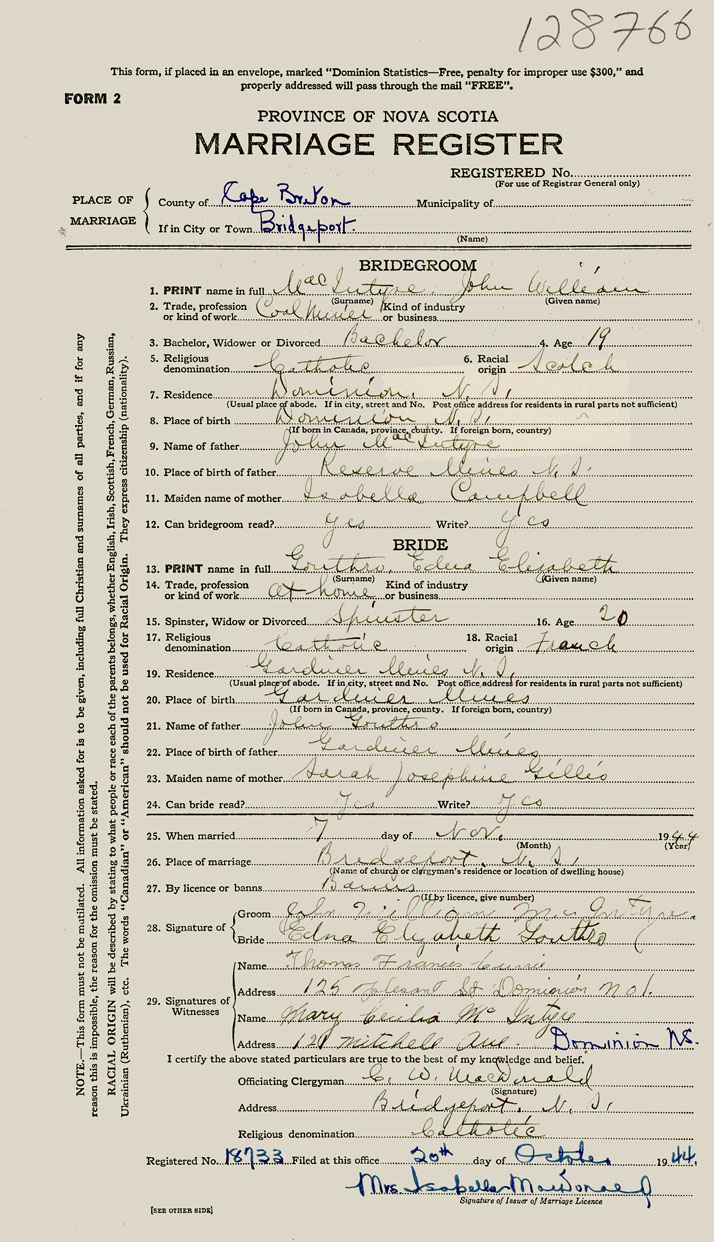 128766
This form, if placed in an envelope, marked "Dominion Statistics—Free, penalty for improper use $300," and
properly addressed will pass through the mail "FREE".
FORM 2
PROVINCE OF NOVA SCOTIA
MARRIAGE REGISTER
REGISTERED No.
(For use of Registrar General only)
PLACE OF MARRIAGE
County of Cape Breton Municipality of
If in City or Town Bridgeport.
(Name)
BRIDEGROOM
1. PRINT name in full MacIntyre, John William
(Surname) (Given name)
2. Trade, profession or kind of work Coal Miner Kind of industry or business
3. Bachelor, Widower or Divorced Bachelor 4. Age 19
5. Religious denomination Catholic 6. Racial origin Scotch
7. Residence Dominion, N. S.
(Usual place of abode. If in city, street and No. Post office address for residents in rural parts not sufficient)
8. Place of birth Dominion N. S.
(If born in Canada, province, county. If foreign born, country)
9. Name of father John MacIntyre
10. Place of birth of father Reserve Mines N. S.
11. Maiden name of mother Isabella Campbell
12. Can bridegroom read? Yes Write? Yes
BRIDE
13. PRINT name in full Gouthro, Edna Elisabeth
(Surname) (Given name)
14. Trade, profession or kind of work at home Kind of industry or business
15. Spinster, Widow or Divorced Spinster 16. Age 20
17. Religious denomination Catholic 18. Racial origin French
19. Residence Gardiner Mines N. S.
(Usual place of abode. If in city, street and No. Post office address for residents in rural parts not sufficient)
20. Place of birth Gardiner Mines
(If born in Canada, province, county. If foreign born, country)
21. Name of father John Gouthro
22. Place of birth of father Gardiner Mines
23. Maiden name of mother Sarah Josephine Gillis
24. Can bride read? Yes Write? Yes
25. When married 7 day of Nov. 1944
(Month) (Year)
26. Place of marriage Bridgeport, N. S.
(Name of church or clergyman's residence or location of dwelling house)
27. By licence or banns Banns
(If by licence, give number)
28. Signature of
Groom John William MacIntyre.
Bride Edna Elizabeth Gouthro
29. Signatures of Witnesses
Name Thomas Francis Currie
Address 125 Plesant St Dominion N.S.
Name Mary Cecilia McIntyre
Address 121 Mitchell Ave. Dominion NS.
I certify the above stated particulars are true to the best of my knowledge and belief.
Officiating Clergyman C. W. MacDonald
(Signature)
Address Bridgeport, N. S.
Religious denomination Catholic
Registered No. 18733 Filed at this office 20th day of October 1944.
Mrs. Isabella MacDonald
Signature of Issuer of Marriage Licence
[SEE OTHER SIDE]
NOTE.—This form must not be mutilated. All information asked for is to be given, including full Christian and surnames of all parties, and if for any
reason this is impossible, the reason for the omission must be stated.
RACIAL ORIGIN will be described by stating to what people or race each of the parents belongs, whether English, Irish, Scottish, French, German, Russian,
Ukrainian (Ruthenian), etc. The words "Canadian" or "American" should not be used for Racial Origin. They express citizenship (nationality).